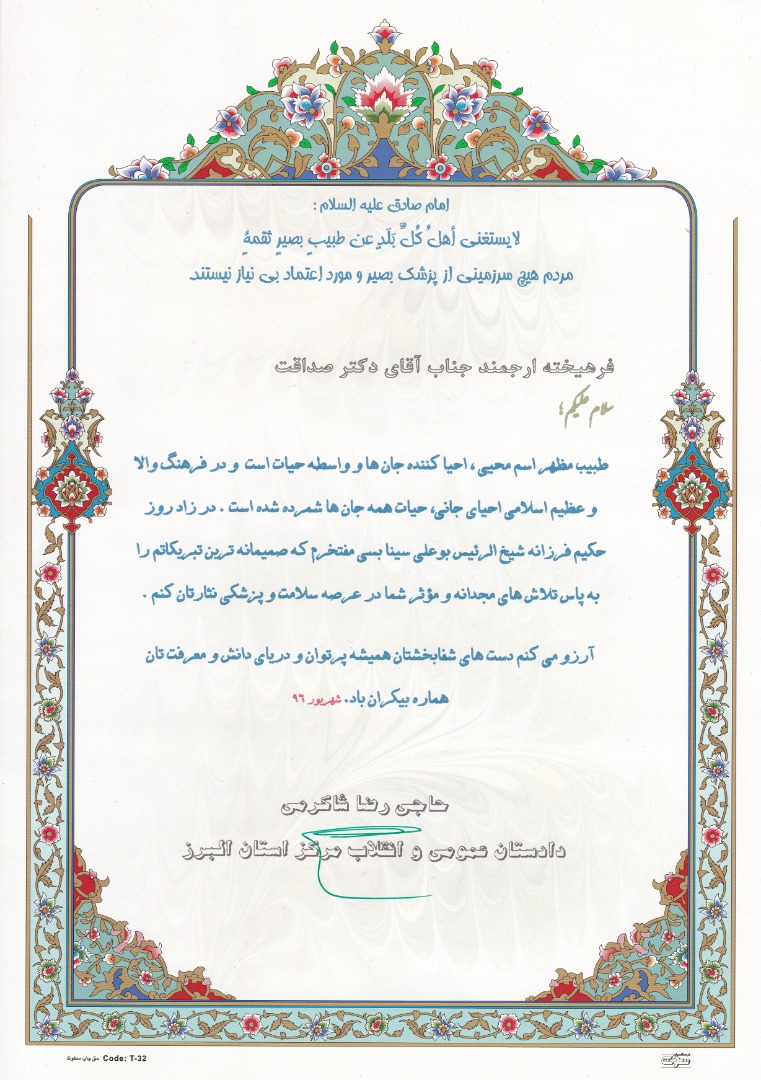 امام صادق علیه السلام :
لایستغنی أهلُ کُلِّ بَلَدٍ عن طبیبٍ بصیرٍ ثقمةٍ
مردم هیچ سرزمینی از پزشک بصیر و مورد اعتماد بی نیاز نیستند
فرهیخته ارجمند جناب آقای دکتر صداقت
سلام علیکم ؛
طبیب مظهر اسم محیی ، احیا کننده جان ها و واسطه حیات است و در فرهنگ والا
و عظیم اسلامی احیای جانی، حیات همه جان ها شمرده شده است . در زاد روز
حکیم فرزانه شیخ الرئیس بوعلی سینا بسی مفتخرم که صمیمانه ترین تبریکاتم را
به پاس تلاش های مجدانه و مؤثر شما در عرصه سلامت و پزشکی نثارتان کنم .
آرزو می کنم دست های شفابخشتان همیشه پرتوان و دریای دانش و معرفت تان
هماره بیکران باد. شهریور ۹۶
حاجی رضا شاکرمی
دادستان عمومی و انقلاب مرکز استان البرز
حق چاپ محفوظ Code: T-32